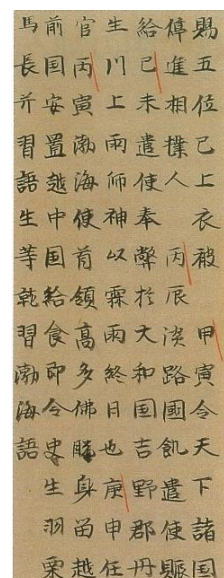 賜五位已上衣被甲寅令天下諸国
停進相撲人丙辰淡路國飢遣使賑
給已未遣使奉弊於大和国吉野郡丹
生川上雨師神以霖雨終日也庚申任
官丙寅渤海使首領高多佛脱身留越
前国安置越中国給食即令史生羽栗
馬長并習語生等乾習渤海語